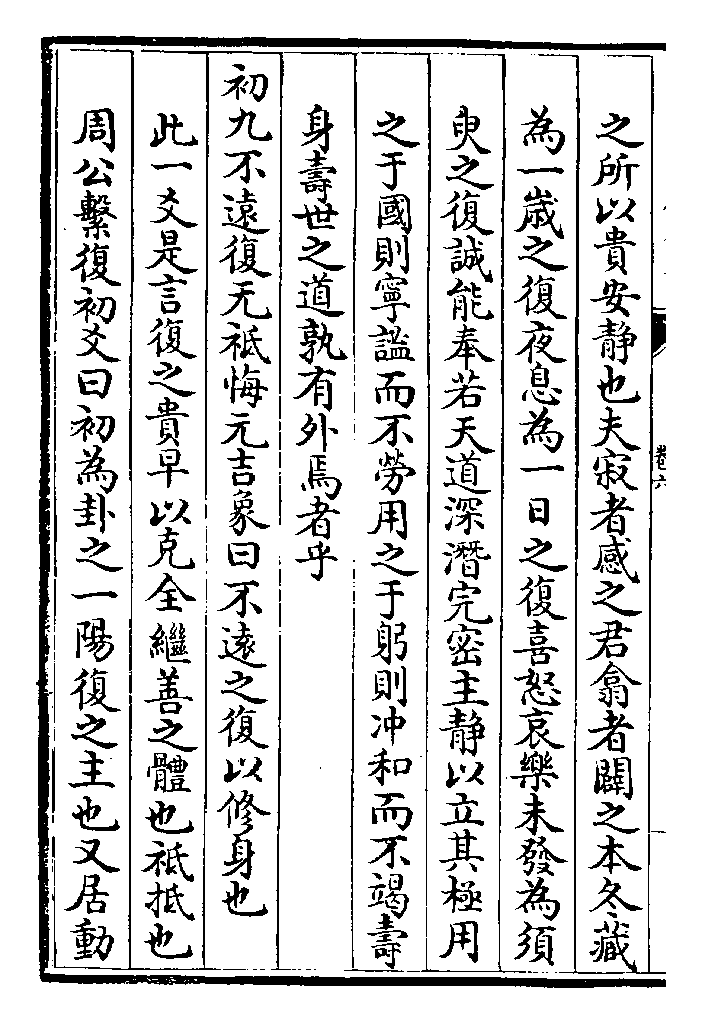 之所以貴安静也夫寂者感之君翕者闢之本冬藏
為一嵗之復夜息為一日之復喜怒哀樂未發為須
臾之復誠能奉若天道深潛完密主静以立其極用
之于國則寧謐而不勞用之于躬則冲和而不竭壽
身壽世之道孰有外焉者乎
初九不遠復无祗悔元吉象曰不遠之復以修身也
此一爻是言復之貴早以克全繼善之體也祗抵也
周公繫復初爻曰初為卦之一陽復之主也又居動
卷六